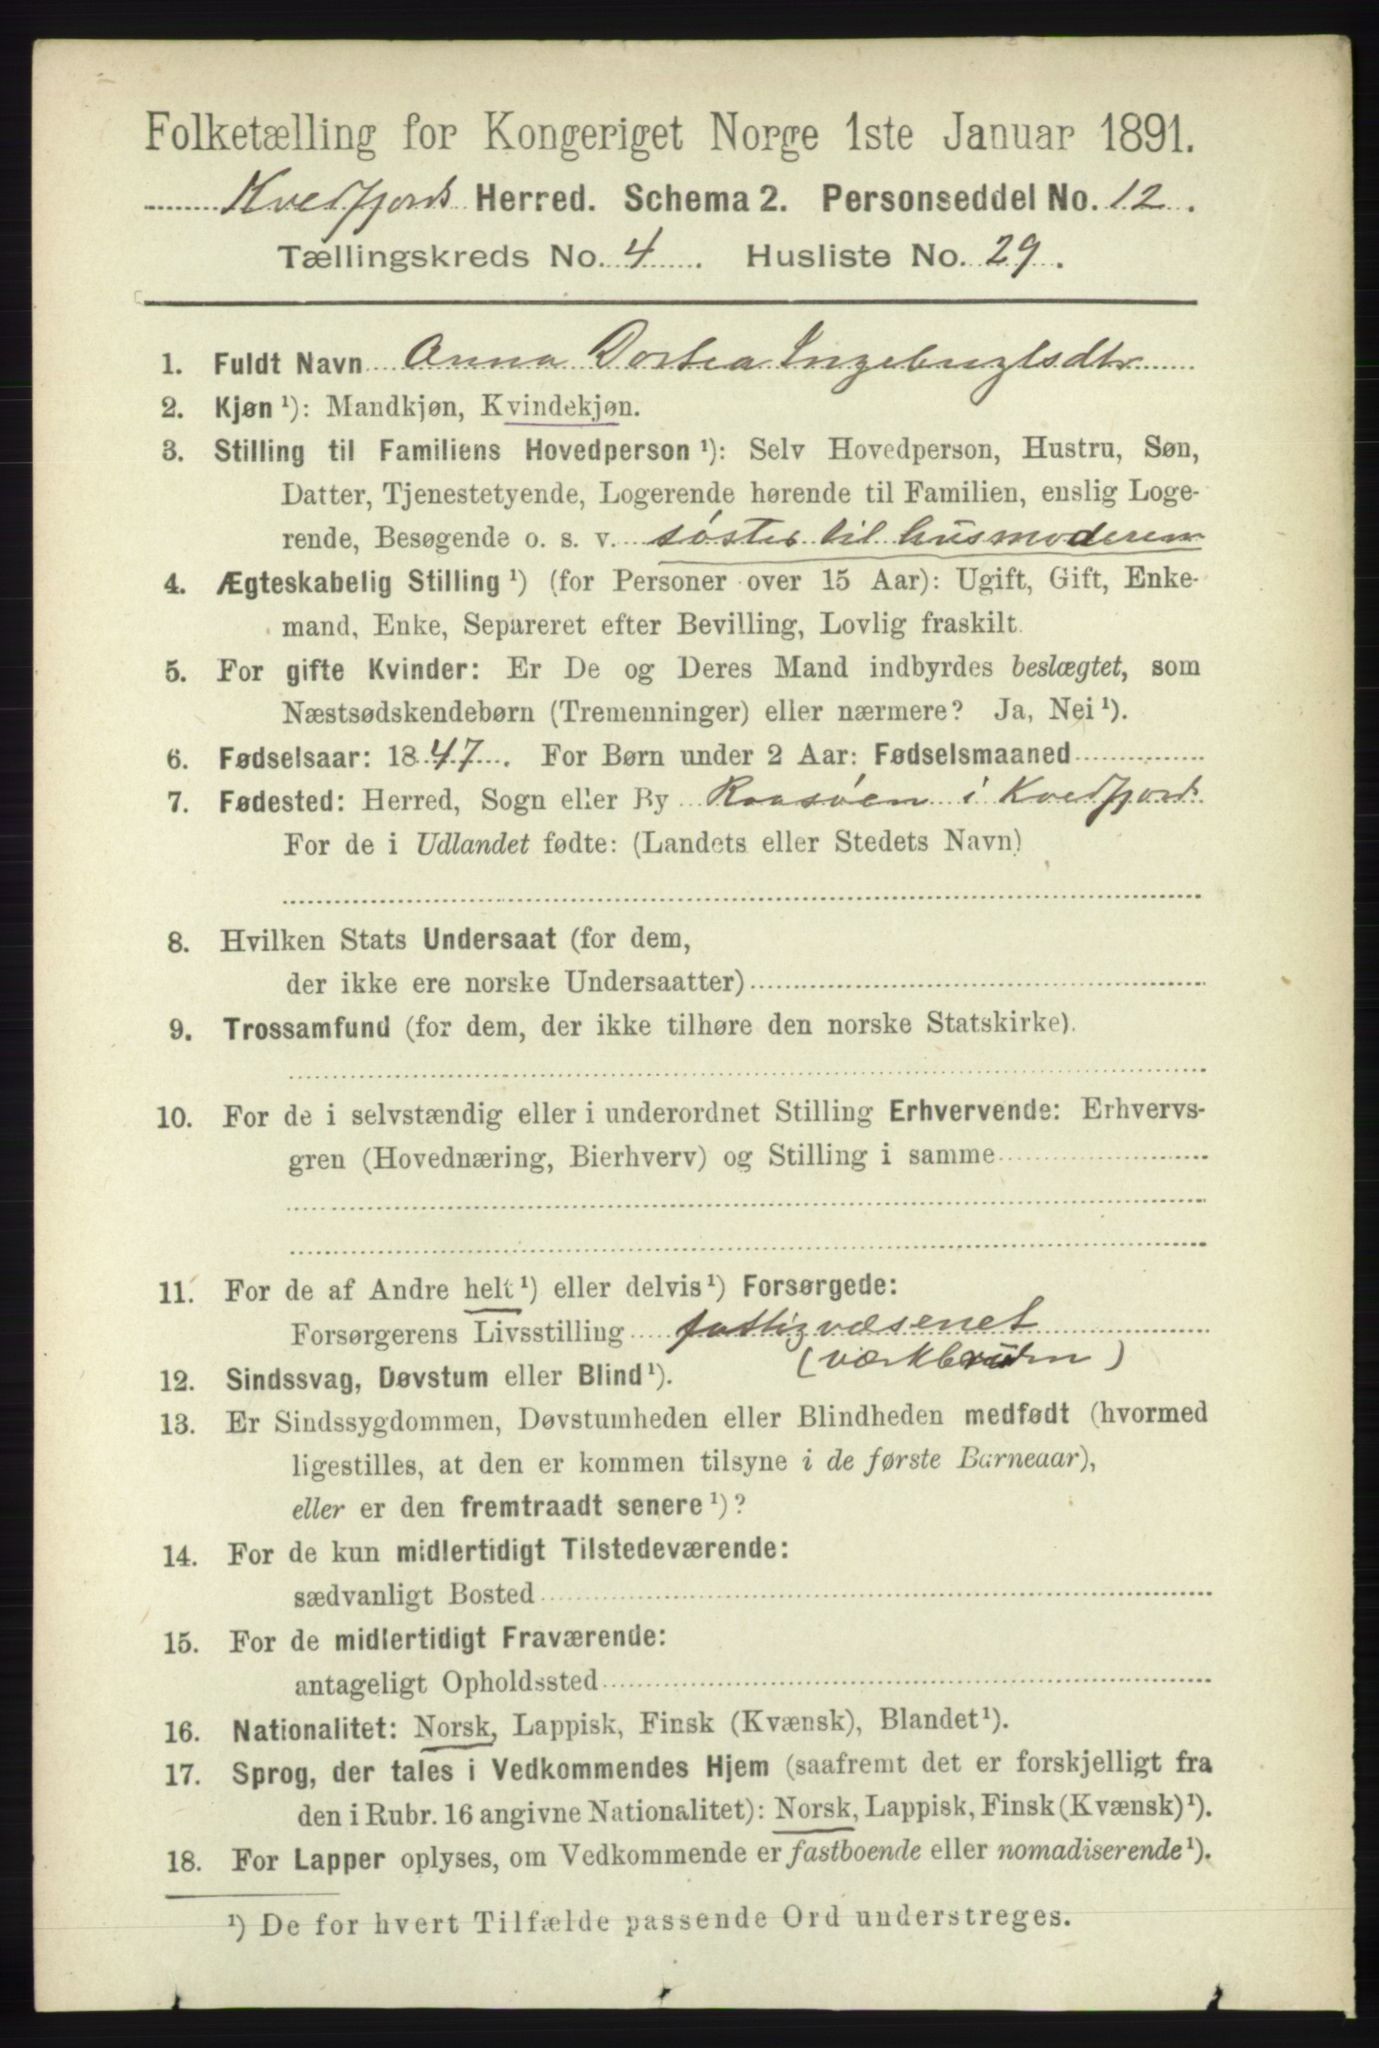 Folketælling for Kongeriget Norge 1ste Januar 1891.
Kvedfjords Herred. Schema 2. Personseddel No. 12.
Tællingskreds No. 4. Husliste No. 29.
1. Fuldt Navn Anna Dortea Ingebrigtsdtr
2. Kjøn ¹): Mandkjøn, Kvindekjøn.
3. Stilling til Familiens Hovedperson ¹): Selv Hovedperson, Hustru, Søn,
Datter, Tjenestetyende, Logerende hørende til Familien, enslig Loge-
rende, Besøgende o. s. v. søster til husmoderen
4. Ægteskabelig Stilling ¹) (for Personer over 15 Aar): Ugift, Gift, Enke-
mand, Enke, Separeret efter Bevilling, Lovlig fraskilt.
5. For gifte Kvinder: Er De og Deres Mand indbyrdes beslægtet, som
Næstsødskendebørn (Tremenninger) eller nærmere? Ja, Nei ¹).
6. Fødselsaar: 1847. For Børn under 2 Aar: Fødselsmaaned
7. Fødested: Herred, Sogn eller By Raasöen i Kvedfjord
For de i Udlandet fødte: (Landets eller Stedets Navn)
8. Hvilken Stats Undersaat (for dem,
der ikke ere norske Undersaatter)
9. Trossamfund (for dem, der ikke tilhøre den norske Statskirke).
10. For de i selvstændig eller i underordnet Stilling Erhvervende: Erhvervs-
gren (Hovednæring, Bierhverv) og Stilling i samme
11. For de af Andre helt ¹) eller delvis ¹) Forsørgede:
Forsørgerens Livsstilling fattigvæsenet
(værkbruden)
12. Sindssvag, Døvstum eller Blind ¹).
13. Er Sindssygdommen, Døvstumheden eller Blindheden medfødt (hvormed
ligestilles, at den er kommen tilsyne i de første Barneaar),
eller er den fremtraadt senere ¹)?
14. For de kun midlertidigt Tilstedeværende:
sædvanligt Bosted
15. For de midlertidigt Fraværende:
antageligt Opholdssted
16. Nationalitet: Norsk, Lappisk, Finsk (Kvænsk), Blandet ¹).
17. Sprog, der tales i Vedkommendes Hjem (saafremt det er forskjelligt fra
den i Rubr. 16 angivne Nationalitet): Norsk, Lappisk, Finsk (Kvænsk) ¹).
18. For Lapper oplyses, om Vedkommende er fastboende eller nomadiserende ¹).
¹) De for hvert Tilfælde passende Ord understreges.